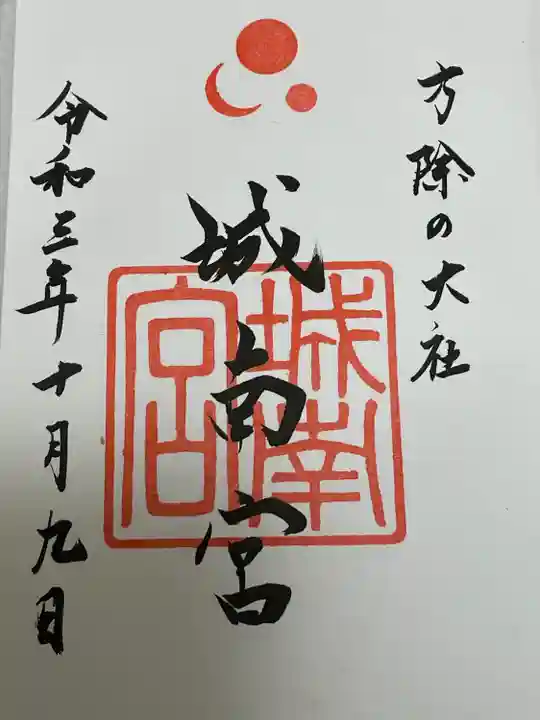 方除の大社
城南宮
城南宮
令和三年十月九日